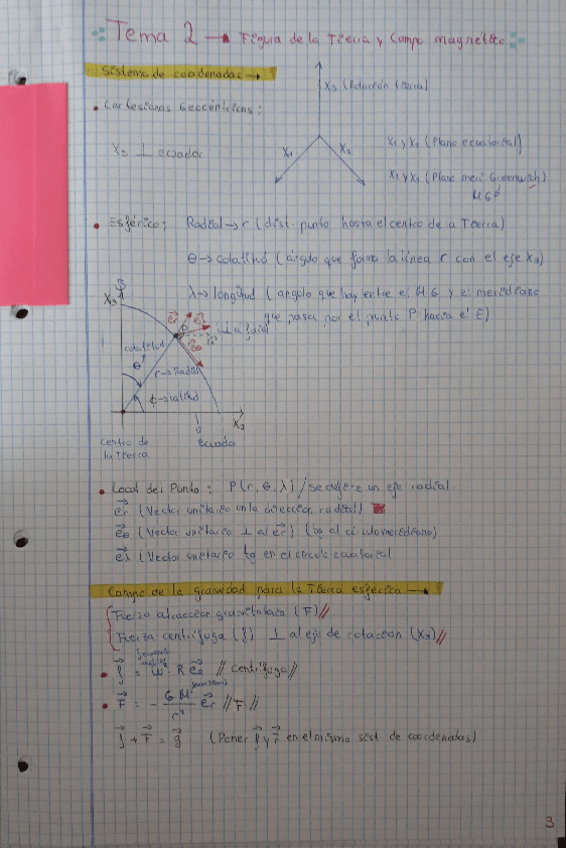 Tema 2 → Figura de la Tierra y Campo magnético
Sistema de coordenadas →
X3 (Rotación
• Cartesianas Geocéntricas:
X3 ⊥ ecuador
X1
X2
X1 y X2 (Plano ecuatorial)
X1 y X3 (Plano meri Greenwich)
MG
• Esférico: Radial → r (dist. punto hasta el centro de la Tierra)
θ → colatitud (ángulo que forma la línea r con el eje X3)
λ → longitud (angulo que hay entre el MG y el meridiano
que pasa por el punto P hacia el E)
X3
colatitud
θ
r → Radial
ϕ → latitud
X2
centro de
la Tierra
ecuador
• Local del Punto: P(r, θ, λ) / se define un eje radial
er (Vector unitario en la dirección radial)
eθ (Vector unitario ⊥ al er) (tg al círculo meridiano)
eλ (Vector unitario tg en el circulo ecuatorial
Campo de la gravedad para la Tierra esférica →
Fuerza atracción gravitatoria (F) //
Fuerza centrífuga (f) ⊥ al eje de rotación (X3) //
• f = w² · R e2 // centrífuga //
• F = - G M / r² er // F //
f + F = g (Poner f y F en el mismo sist. de coordenadas)
3